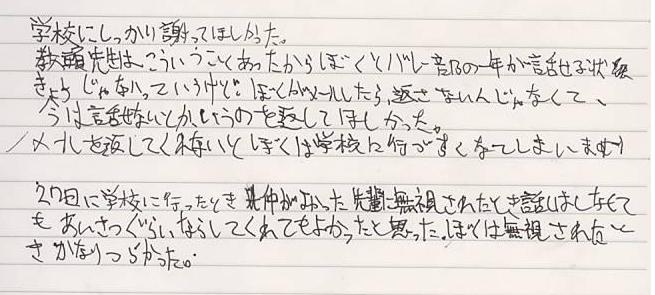 学校にしっかり謝ってほしかった。
教頭先生は、こういうことあったからぼくとバレー部の一年が話せる状
きょう じゃないっていうけど、ぼくがメールしたら、返さないんじゃなくて、
今は話せないとか、いうのを返してほしかった。
メールを返してくれないとぼくは学校に行きづらくなってしまいます
27日に学校に行ったとき 仲がよかった先輩に無視されたとき話はしなくて
も あいさつぐらいならしてくれてもよかったと思った。ぼくは無視されたと
き かなりつらかった。